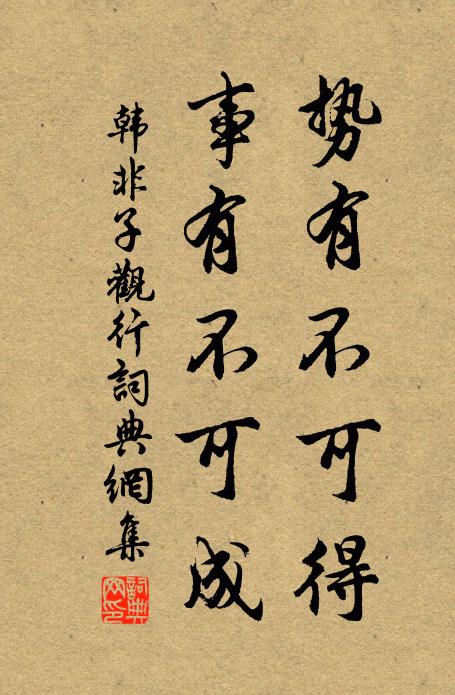 势有不可得
事有不可成
韩非子觀行詞典網集
詞典网印